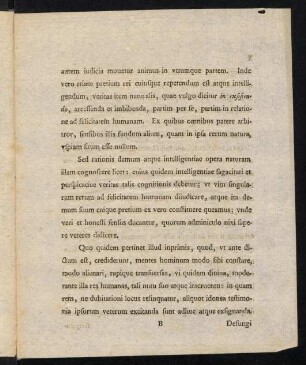 autem iudicia mouetur animus in vtramque partem. Inde
vero etiam pretium rei cuiusque repetendum est atque intelli-
gendum, veritas item naturalis, quae vulgo dicitur in
da, arcessenda et imbibenda, partim per se, partim in relatio-
ne ad felicitatem humanam. Ex quibus omnibus patere arbi-
tror, sensibus illis fundum alium, quam in ipsa rerum natura,
vspiam situm esse nullum.
Sed rationis demum atque intelligentiae opera naturam
illam cognoscere licet; cuius quidem intelligentiae sagacitati et
perspicaciae veritas talis cognitionis debetur; vt vim singula-
rum rerum ad felicitatem humanam diiudicare, atque ita de-
mum suum cuique pretium ex vero constituere queamus; vnde
veri et honesti sensus ducantur, quorum adminiculo nixi sape-
re veteres
Quo quidem pertinet illud inprimis, quod, vt ante di-
ctum est, crediderunt, mentes hominum modo sibi constare,
modo alienari, rapique transuersas, vi quidem diuina, mode-
rante illa res humanas, tali
rem, ne dubitationi locus relinquatur, aliquot idonea testimo-
nia ipsorum veterum excitanda sunt adhuc atque exsignanda.
B Defungi